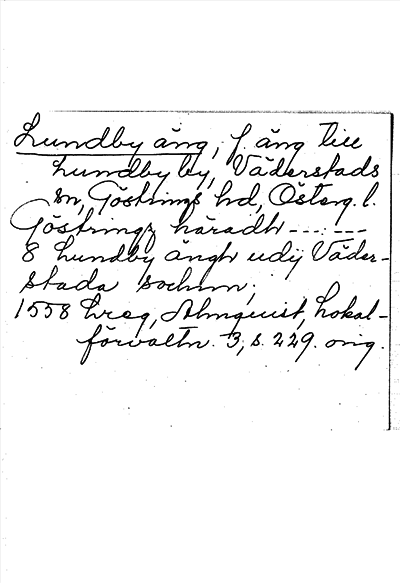 Lundby äng, f. äng till
Lundby by, Väderstads
sn, Göstrings hd, Österg. l.
Göstringz häradh --- ---
8 Lundby ängh udij Väder-
stada sochnn;
1558 Lreg, Almquist, Lokal-
förvaltn. 3, s. 229. orig.